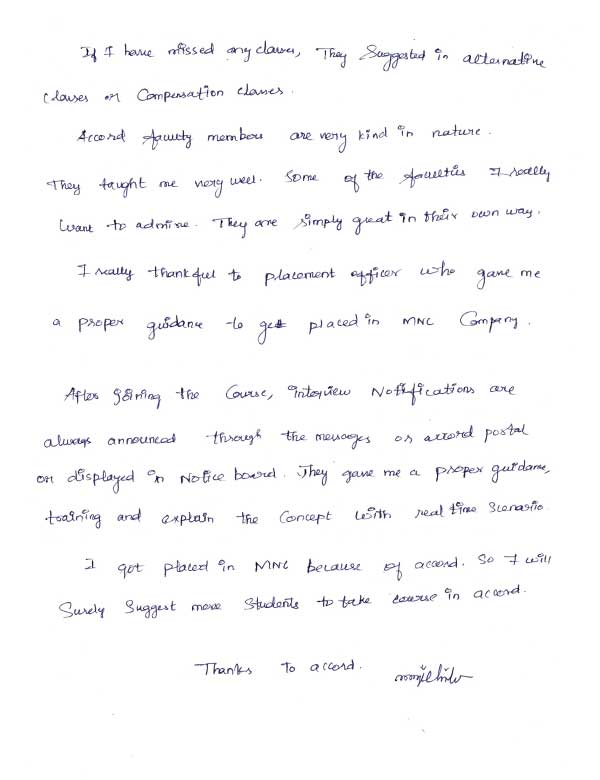 If I have missed any classes, They Suggested in alternative
Classes or Compensation classes.
Accord faculty members are very kind in nature.
They taught me very well. Some of the faculties I really
want to admire. They are simply great in their own way.
I really thankful to placement officer who gave me
a proper guidance to get placed in MNC Company.
After joining the Course, interview Notifications are
always announced through the messages or accord postal
or displayed in Notice board. They gave me a proper guidance,
training and explain the Concept with real time Scenario.
I got placed in MNC because of accord. So I will
Surely Suggest more Students to take course in accord.
Thanks to accord.